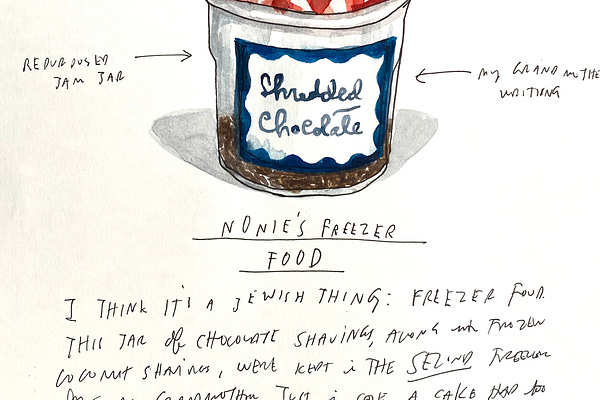 REPURPOSED
JAM JAR
MY GRANDMOTHE
WRITING
Shredded
Chocolate
NONIE'S FREEZER
FOOD
I THINK IT'S A JEWISH THING: FREEZER FOOD.
THIS JAR of CHOCOLATE SHAVINGS, ALONG with FROZEN
COCONUT SHAVINGS, WERE KEPT in THE SECOND FREEZER
GRANDMOTHER JUST in CASE A CAKE HAD to